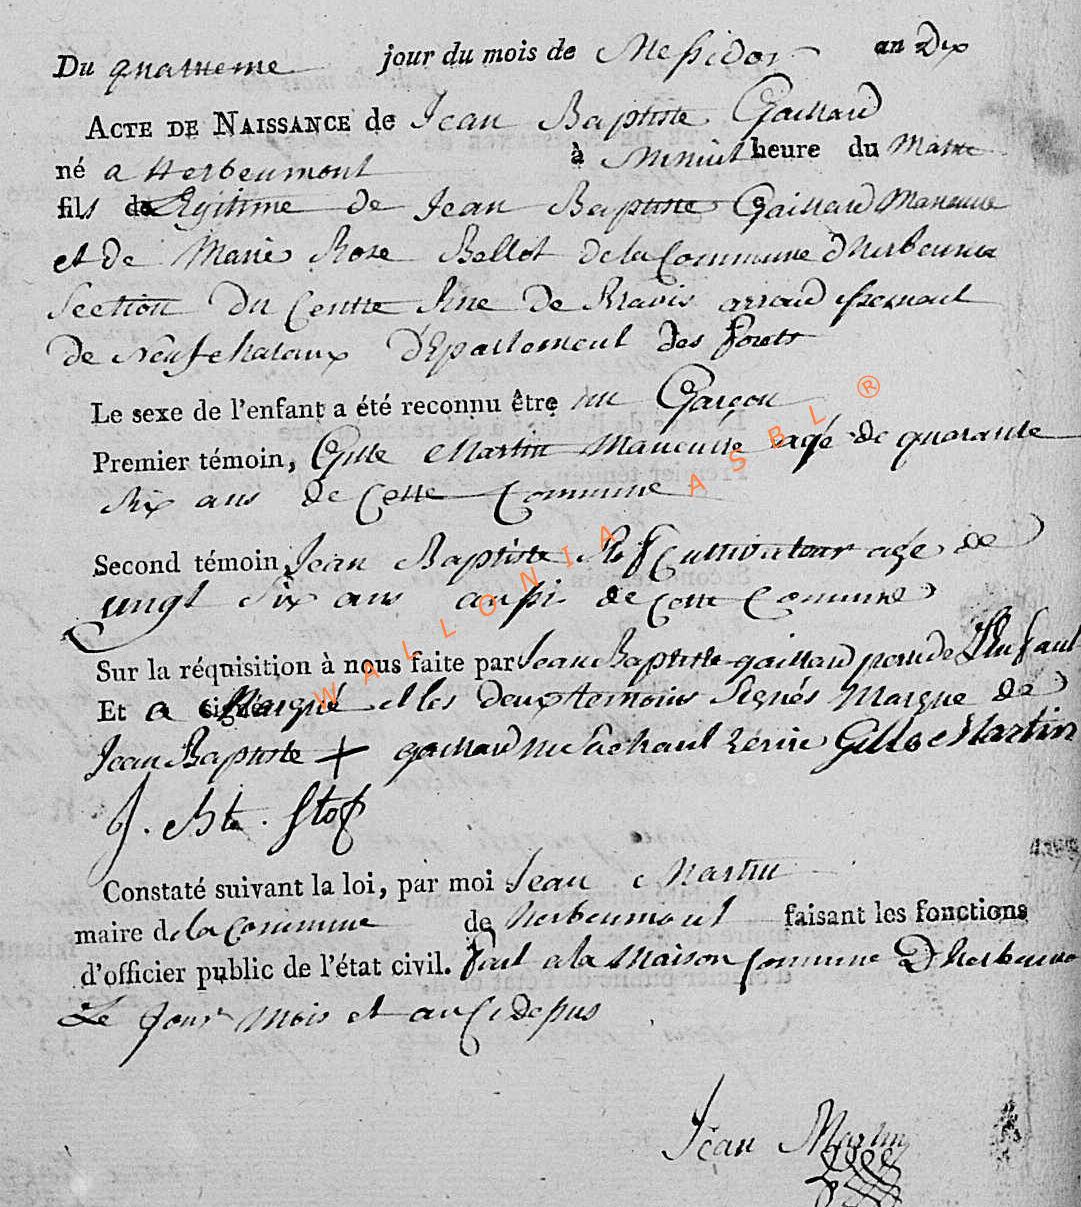 Du quatrieme jour du mois de Messidor an Dix
ACTE DE NAISSANCE de Jean Baptiste Gaillard
né a Herbeumont à Minuit heure du Matin
fils de Legitime de Jean Baptiste Gaillard Maneuvre
et de Marie Rose Bellot de la Commune dherbeumo
Section du Centre de arrondissement
de Neufchateaux DEpartement des forets
Le sexe de l'enfant a été reconnu être un Garçon
Premier témoin, Gille Martin Maneuvre agé de quarante
Six ans de Cette Commune
Second témoin Jean Baptiste Cultivateur agé de
vingt Six ans aussi de Cette Commune
Sur la réquisition à nous faite par Jean Baptiste gaillard pere de L'Enfant
Et a Marqué et les deux temoins Signés Marque de
Jean Baptiste + gaillard ne Sachant Ecrire Gille Martin
J. Bte. Stof
Constaté suivant la loi, par moi Jean Martin
maire de la Commune de herbeumont faisant les fonctions
d'officier public de l'état civil. fait a la Maison Commune D'herbeumo
Le Jour Mois et an Cidessus
Jean Martin
WALLONIA ASBL ®